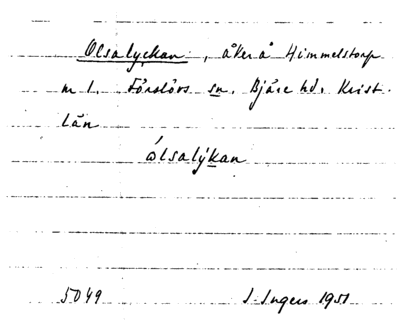 Olsalyckan, åker å Himmelstorp
n 1. Förslövs sn. Bjäre hd. Krist.
län
ólsalýkan
5049 I. Ingers 1951